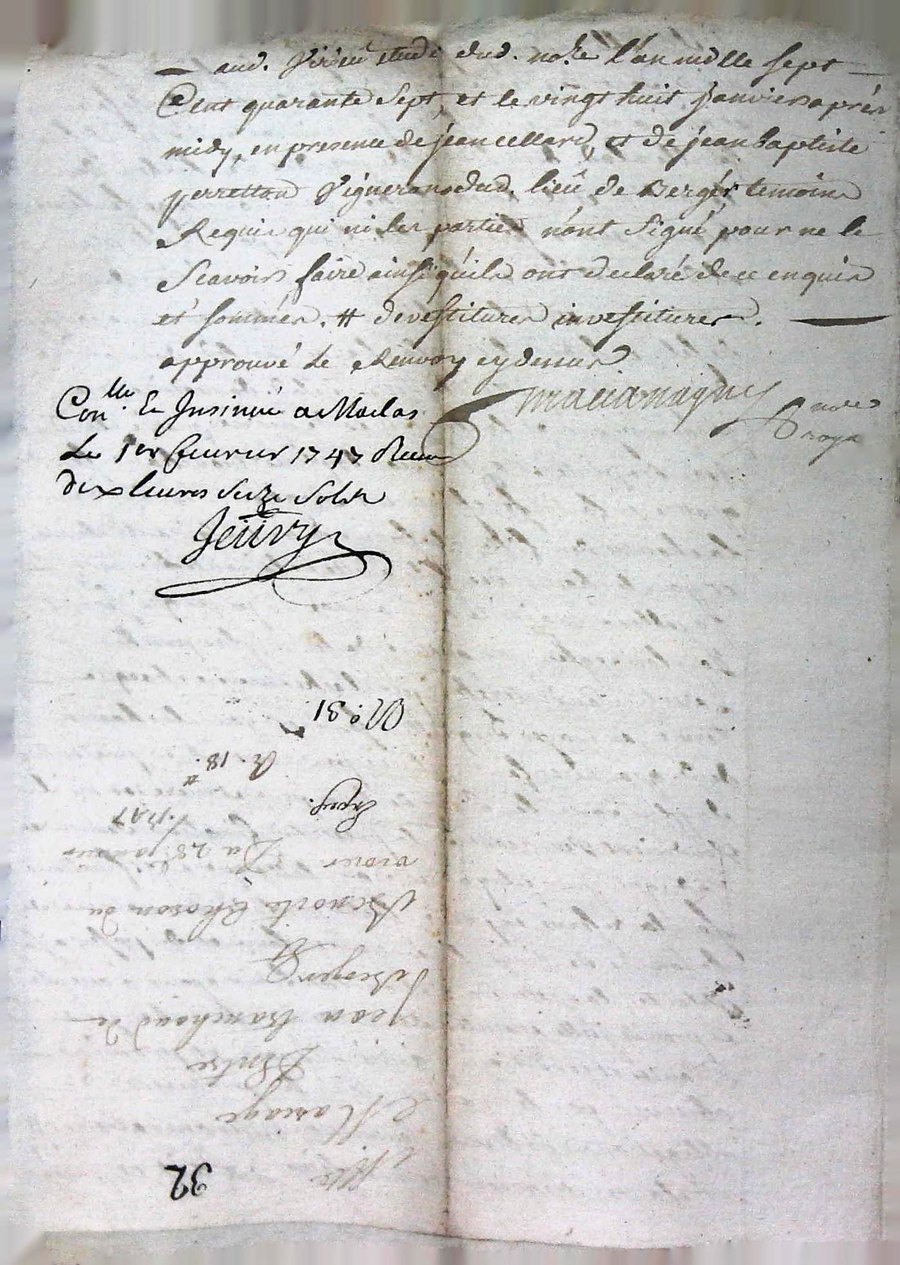 aud. Virieu etude dud. no.re l'an mille sept
Cent quarante Sept, et le vingt huit Janvier après
midy, en presence de jean cellard, et de jean baptiste
perretton Vignerons dud. lieu de Bergés temoins
Requis qui ni les parties n'ont Signé pour ne le
Scavoir faire ainsi qu'ils ont declaré de ce enquis
et sommés. # devestitures investitures.
approuvé le Renvoy cy dessus
no.re
royal
Con.lle Et Insinué a Maclas
Le 1er fevrier 1747 Receu
dix livres Seize Sols
Jeüvry
32
Mariage
D'Entre
jean Branchard de
Benoite Choson du
Du 28 janvier
1747
Exped.
R. 18.#
N.o 31